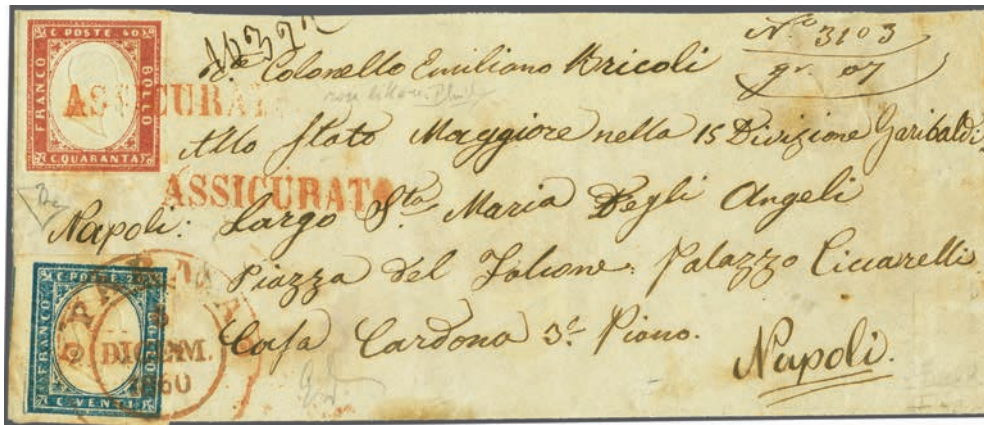 C. POSTE 40
FRANCO BOLLO
C. QUARANTA
N.º 3103
gr. 07
Colonello Emiliano Bricoli
ASSICURAT
Allo Stato Maggiore nella 15 Divizione Garibaldi
ASSICURATO
Napoli: Largo Sta Maria Degli Angeli
Piazza del Falcone. Palazzo Ciccarelli
Casa Cardona 3º Piano.
Napoli.
C. POSTE 20
FRANCO BOLLO
C. VENTI
DICEM.
1860